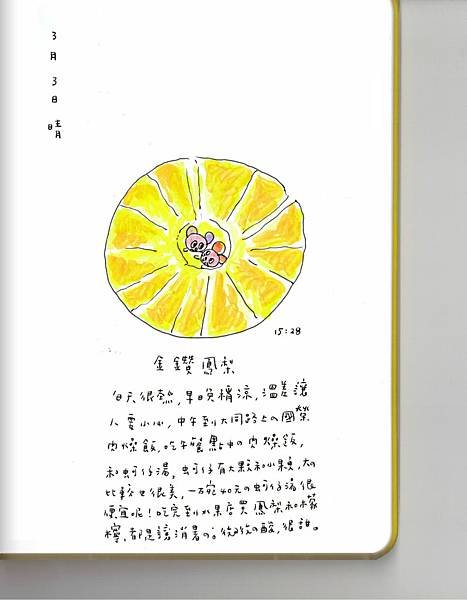 3月3日 晴
15:28
金鑽鳳梨
白天很熱,早晚稍涼,溫差讓
人要小心,中午到大同路上の國榮
肉燥飯,吃午餐點中の肉燥飯,
和蚵仔湯,蚵仔有大顆和小顆,大の
比較也很美,一碗40元の蚵仔湯很
便宜呢!吃完到水果店買鳳梨和檸
檬,都是讓消暑の。微微の酸,很甜。